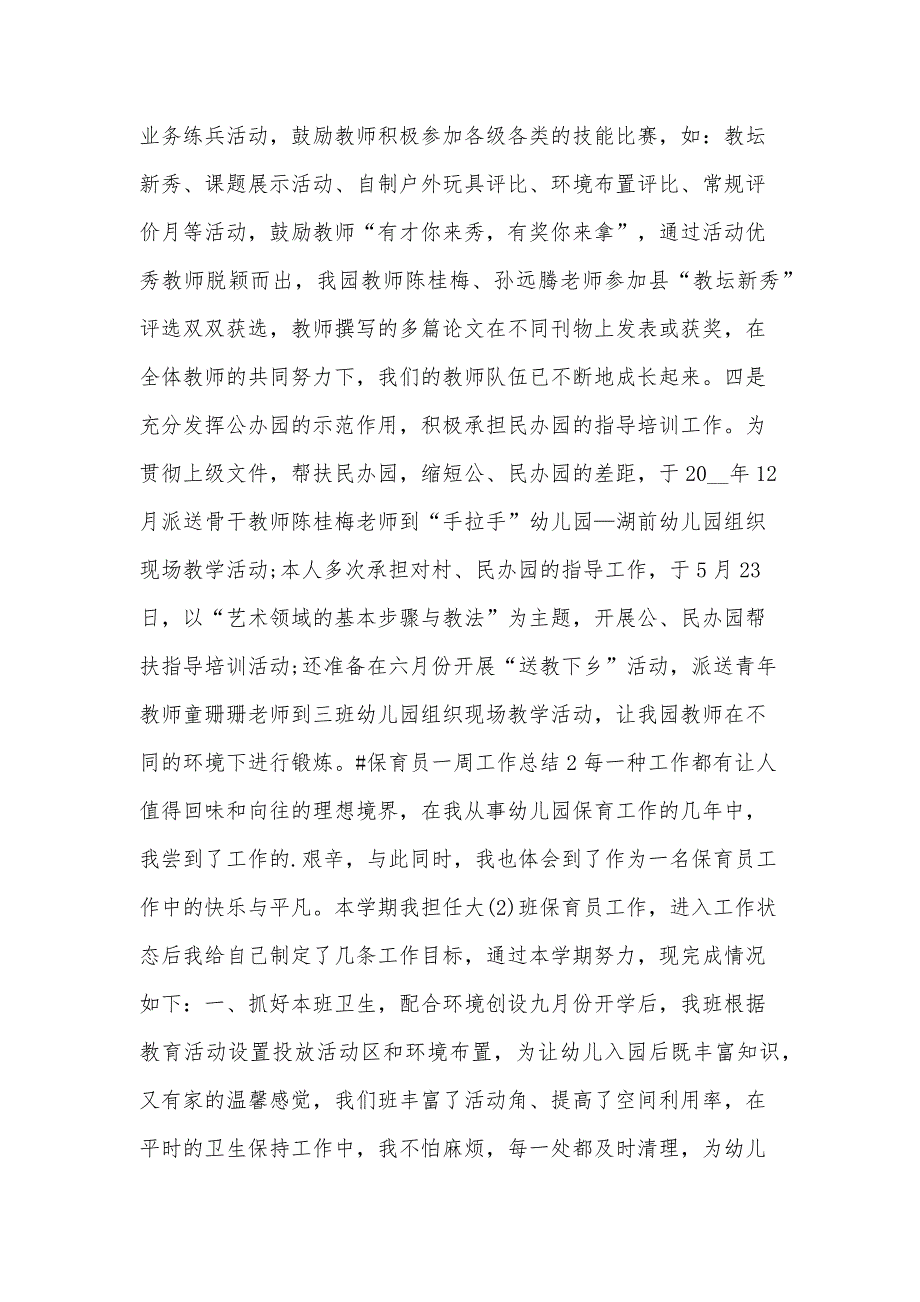 业务练兵活动，鼓励教师积极参加各级各类的技能比赛，如：教坛
新秀、课题展示活动、自制户外玩具评比、环境布置评比、常规评
价月等活动，鼓励教师“有才你来秀，有奖你来拿”，通过活动优
秀教师脱颖而出，我园教师陈桂梅、孙远腾老师参加县“教坛新秀”
评选双双获选，教师撰写的多篇论文在不同刊物上发表或获奖，在
全体教师的共同努力下，我们的教师队伍已不断地成长起来。四是
充分发挥公办园的示范作用，积极承担民办园的指导培训工作。为
贯彻上级文件，帮扶民办园，缩短公、民办园的差距，于 20__年 12
月派送骨干教师陈桂梅老师到“手拉手”幼儿园—湖前幼儿园组织
现场教学活动;本人多次承担对村、民办园的指导工作，于 5 月 23
日，以“艺术领域的基本步骤与教法”为主题，开展公、民办园帮
扶指导培训活动;还准备在六月份开展“送教下乡”活动，派送青年
教师童珊珊老师到三班幼儿园组织现场教学活动，让我园教师在不
同的环境下进行锻炼。#保育员一周工作总结 2 每一种工作都有让人
值得回味和向往的理想境界，在我从事幼儿园保育工作的几年中，
我尝到了工作的.艰辛，与此同时，我也体会到了作为一名保育员工
作中的快乐与平凡。本学期我担任大(2)班保育员工作，进入工作状
态后我给自己制定了几条工作目标，通过本学期努力，现完成情况
如下：一、抓好本班卫生，配合环境创设九月份开学后，我班根据
教育活动设置投放活动区和环境布置，为让幼儿入园后既丰富知识，
又有家的温馨感觉，我们班丰富了活动角、提高了空间利用率，在
平时的卫生保持工作中，我不怕麻烦，每一处都及时清理，为幼儿